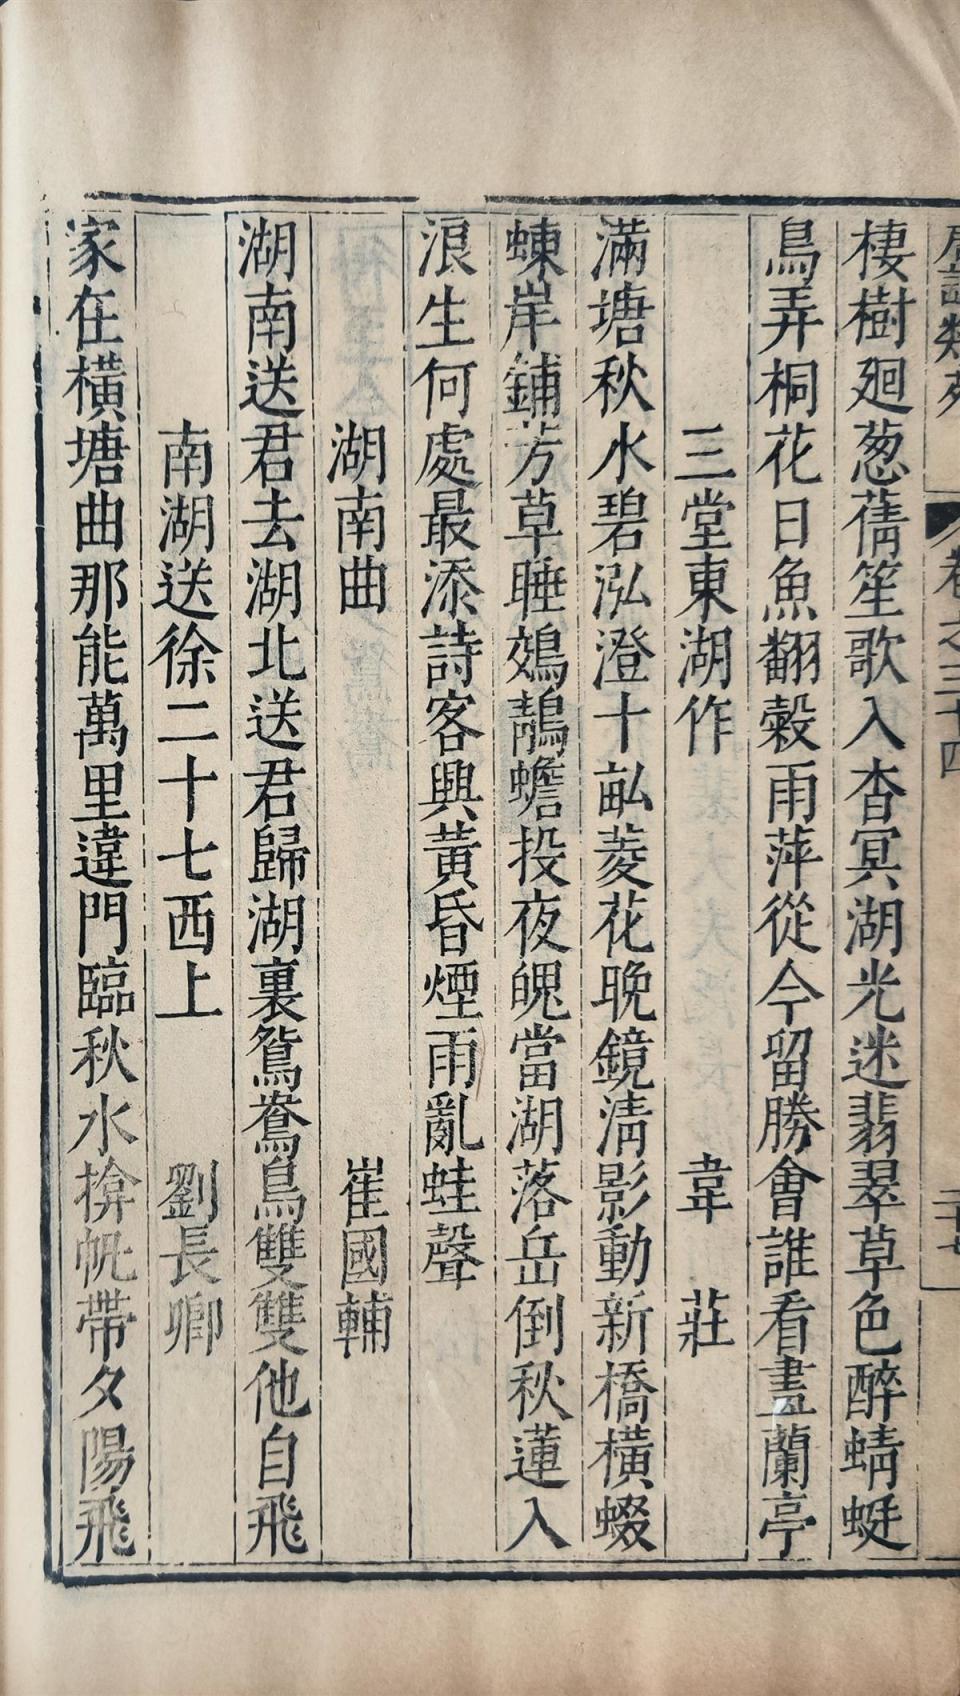 唐詩類苑 卷之三十四 二十七
棲樹廻葱蒨笙歌入杳冥湖光迷翡翠草色醉蜻蜓
鳥弄桐花日魚翻縠雨萍從今留勝會誰看畫蘭亭
三堂東湖作 韋莊
滿塘秋水碧泓澄十畝菱花晚鏡淸影動新橋橫蝃
蝀岸鋪芳草睡鵁鶄蟾投夜魄當湖落岳倒秋蓮入
浪生何處最添詩客興黃昏煙雨亂蛙聲
湖南曲 崔國輔
湖南送君去湖北送君歸湖裏鴛鴦鳥雙雙他自飛
南湖送徐二十七西上 劉長卿
家在橫塘曲那能萬里違門臨秋水㨯帆帶夕陽飛